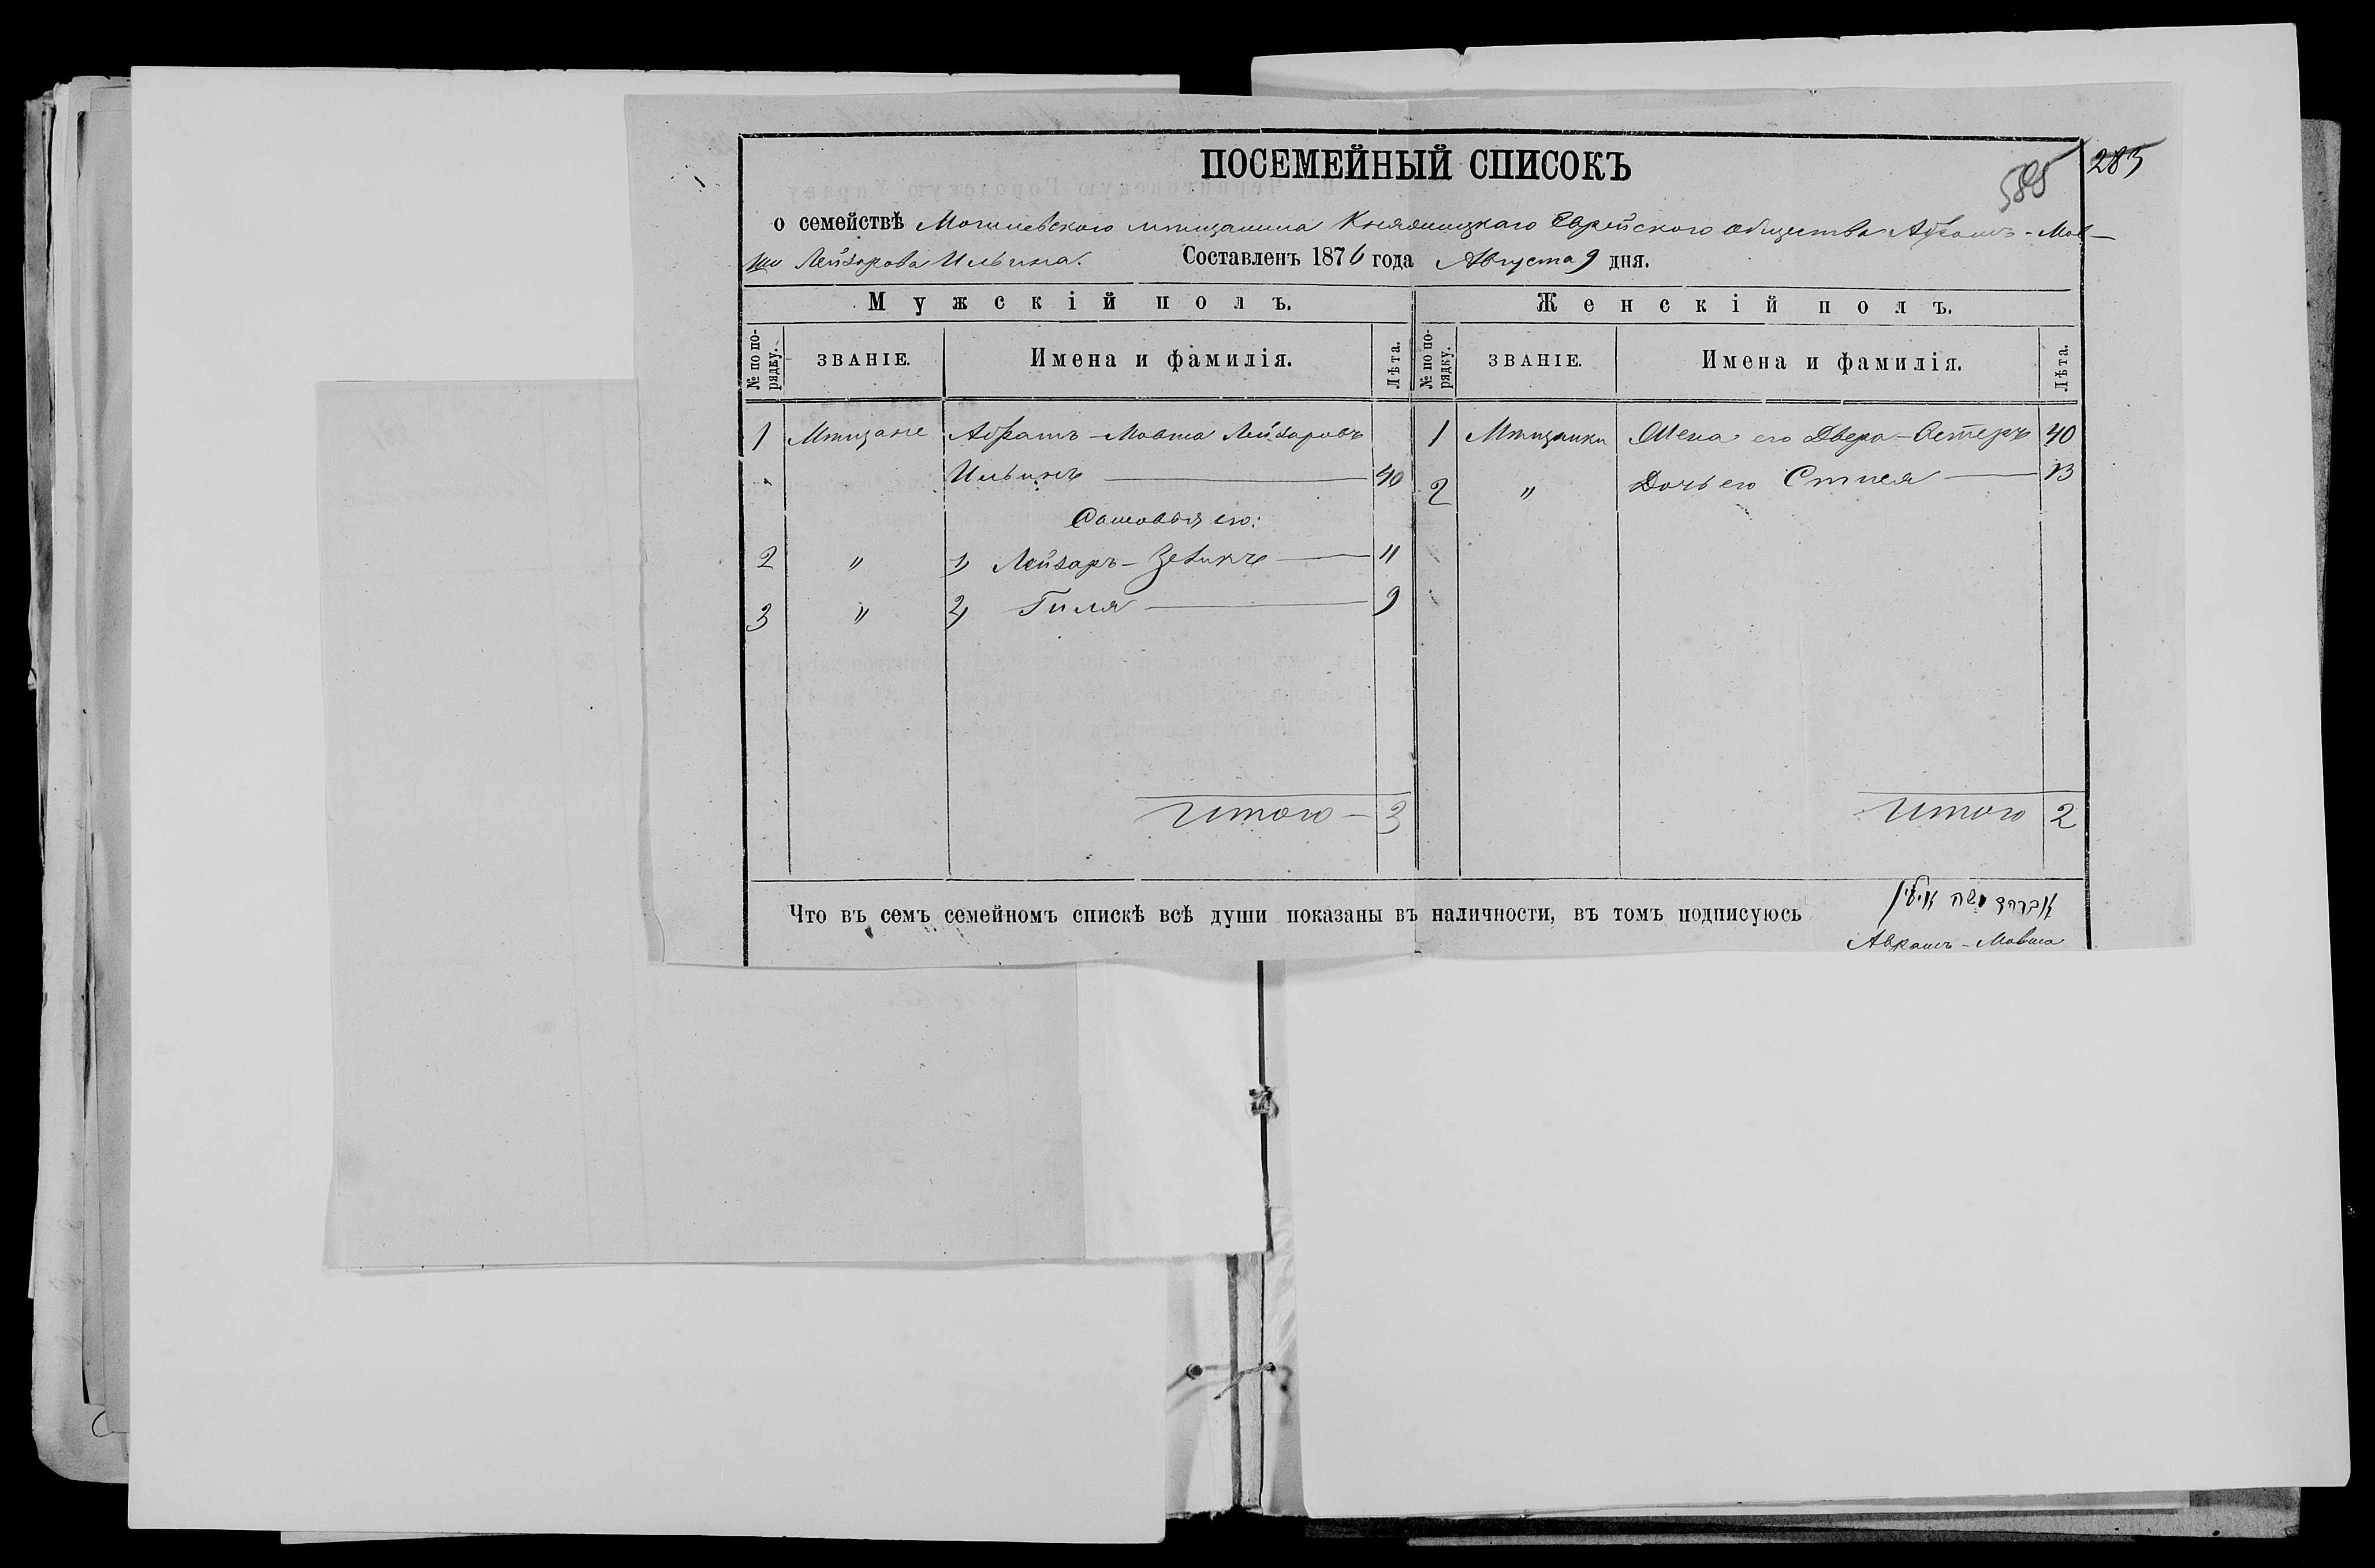 ПОСЕМЕЙНЫЙ СПИСОКЪ
585
283
о семействѣ Могилевского мѣщанина Княжицкаго Еврейского общества Абрамъ-Мов-
ши Лейзорова Ильина. Составленъ 1876 года Августа 9 дня.
Мужскій полъ. Женскій полъ.
№ по порядку. ЗВАНІЕ. Имена и фамилія. Лѣта. № по порядку. ЗВАНІЕ. Имена и фамилія. Лѣта.
1 Мѣщане Абрамъ-Мовша Лейзоровъ 1 Мѣщанки Жена его Двера-Естеръ 40
Ильинъ 40 2 " Дочь его Стися 13
Сыновья его:
2 " 1) Лейзаръ- 11
3 " 2) Гиля 9
Итого - 3 Итого 2
Что въ семъ семейномъ спискѣ всѣ души показаны въ наличности, въ томъ подписуюсь
אברהם משה אילין
Аврамъ-Мовша